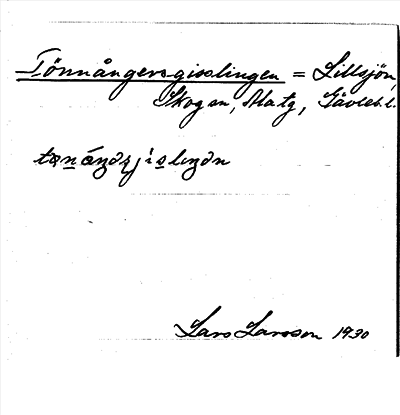 Tönnångersgisslingen = Lillsjön,
Skogen, Alatg, Gävleb. l.
tønáŋəʂjisleŋən
Lars Larsson 1930